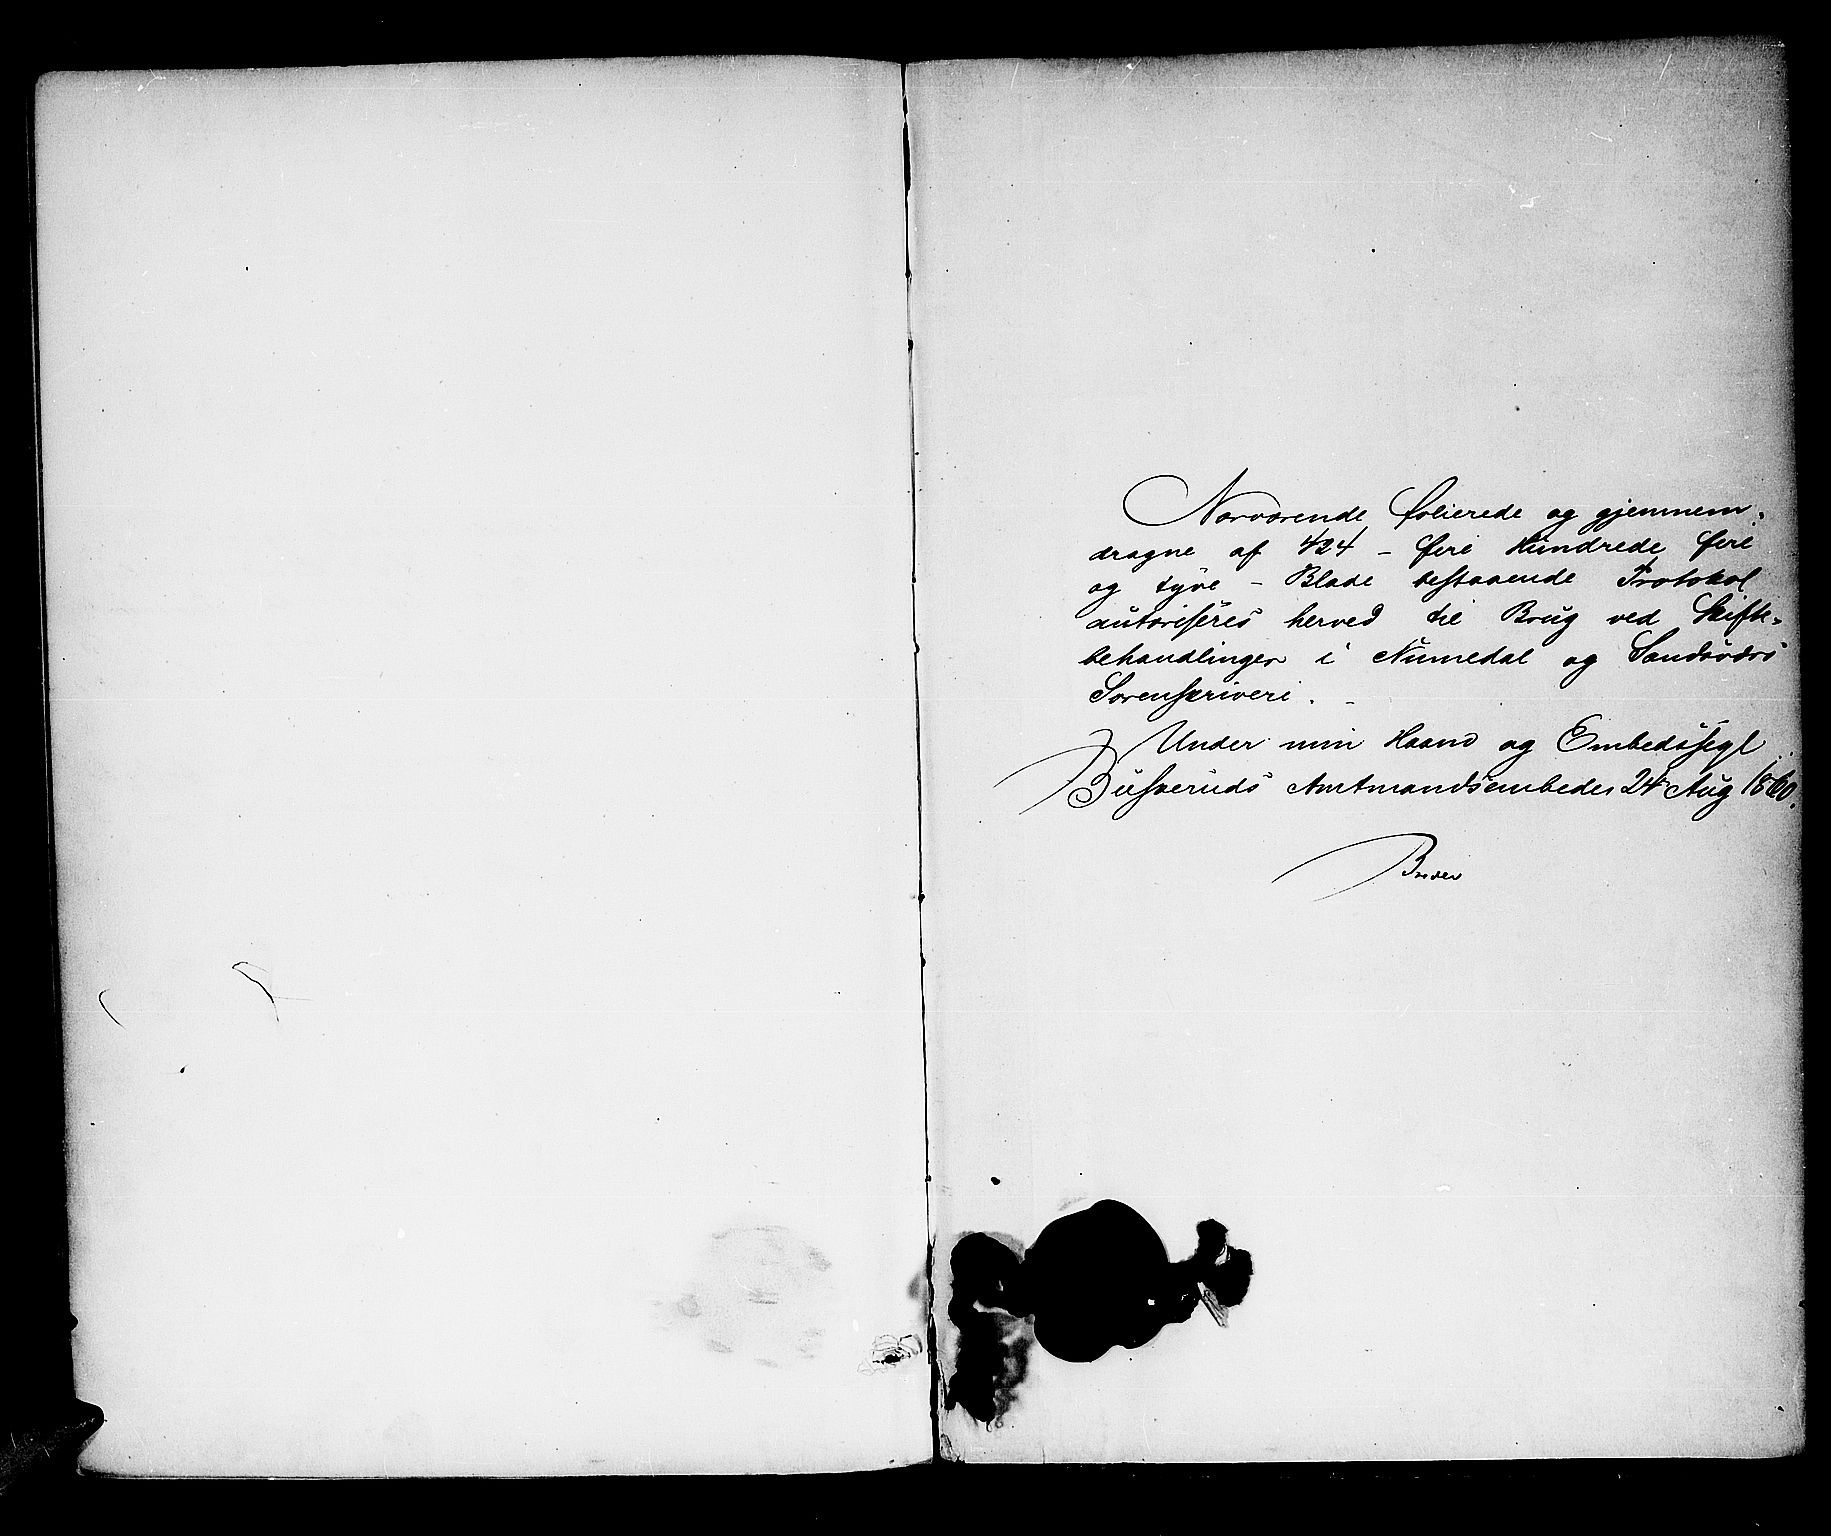 Nærværende folierede og gjennem-
dragne af 424 - fire Hundrede fire
og tyve - Blade bestaaende Protokol
autoriseres herved til Brug ved Skifte-
behandlinger i Numedal og Sandsværs
Sorenskriveri. -
Under min Haand og Embedssegl
Buskeruds Amtmandsembede 24 Aug 1860.